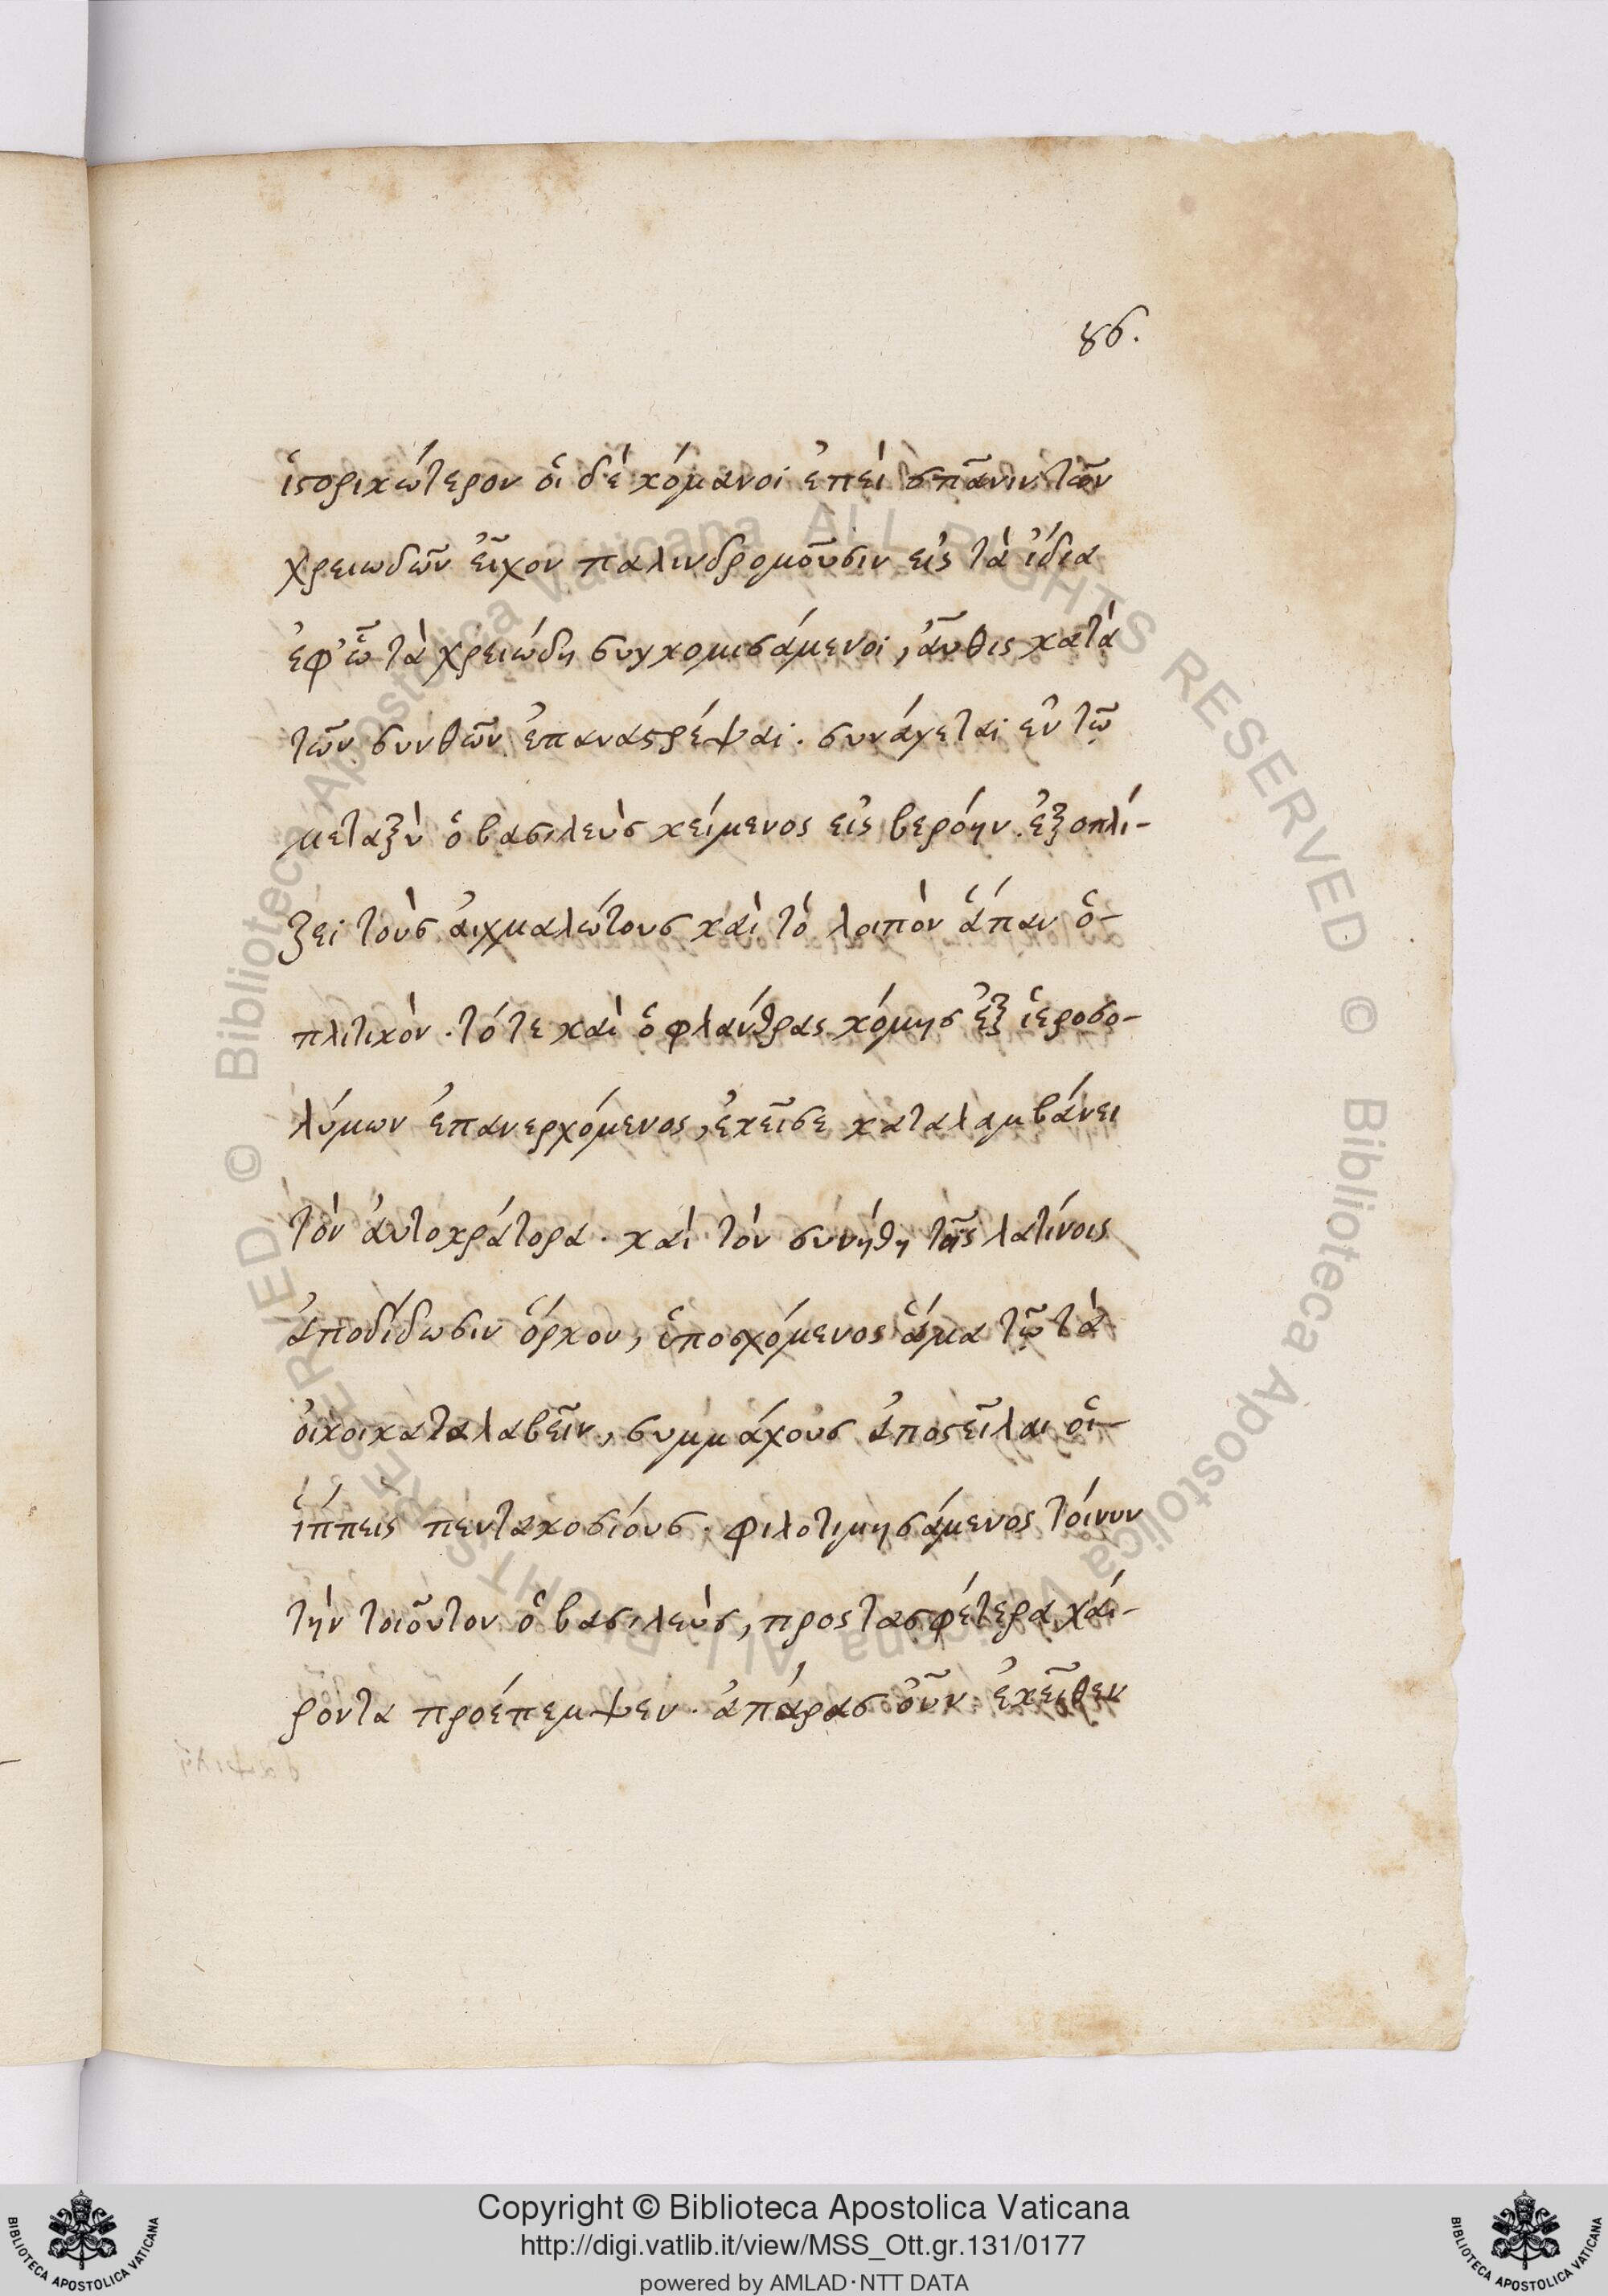 86.
ἱστορικώτερον οἱ δὲ κόμανοι ἐπεὶ σπᾶνιν τῶν
χρειωδῶν εἶχον παλινδρομοῦσιν εἰς τὰ ἴδια
ἐφ' ὧ τὰ χρειώδη συγκομισάμενοι, αὖθις κατὰ
τῶν συνθῶν ἐπαναστρέψαι. συνάγεται ἐν τῷ
μεταξὺ ὁ βασιλεὺς κείμενος εἰς βερόην. ἐξοπλί-
ζει τοὺς αἰχμαλώτους καὶ τὸ λοιπὸν ἅπαν ὁ-
πλιτικὸν. τότε καὶ ὁ φλάντρας κόμης ἐξ ἱεροσο-
λύμων ἐπανερχόμενος, ἐκεῖσε καταλαμβάνει
τὸν αὐτοκράτορα. καὶ τὸν συνήθη τοῖς λατίνοις
ἀποδίδωσιν ὅρκον, ὑποσχόμενος ἅμα τῷ τὰ
οἴκοι καταλαβεῖν, συμμάχους ἀποστεῖλαι οἱ-
ἵππεις πεντακοσίους. φιλοτιμησάμενος τοίνυν
τὴν τοιοῦτον ὁ βασιλεὺς, προς τα σφέτερα χαί-
ροντα προέπεμψεν. ἀπάρας οὖν ἐκεῖθεν
© Biblioteca Apostolica Vaticana ALL RIGHTS RESERVED © Biblioteca Apostolica Vaticana ALL RIGHTS RESERVED
Copyright © Biblioteca Apostolica Vaticana
http://digi.vatlib.it/view/MSS_Ott.gr.131/0177
powered by AMLAD·NTT DATA
BIBLIOTECA APOSTOLICA VATICANA
BIBLIOTECA APOSTOLICA VATICANA